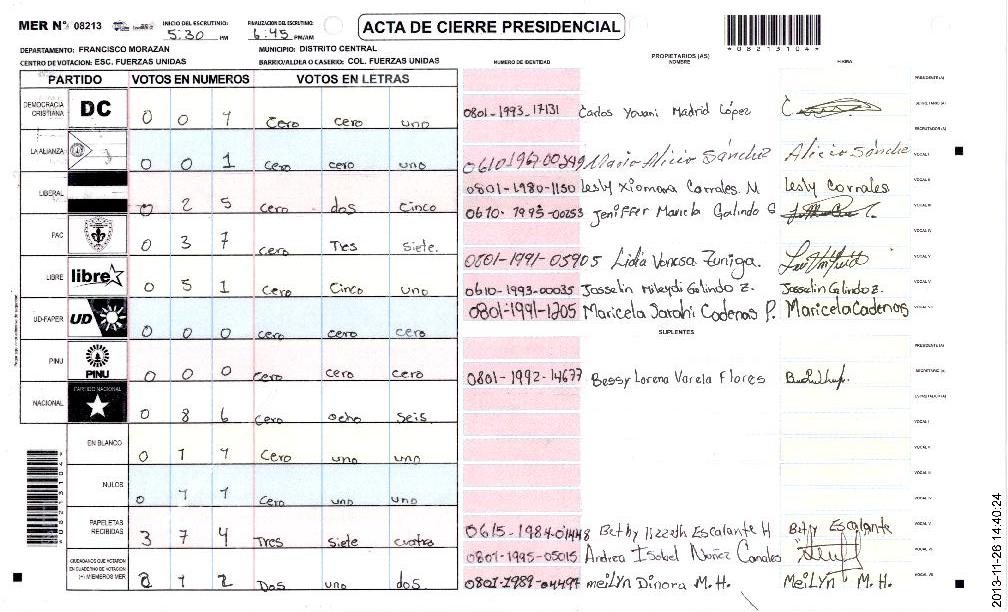 MER N° 08213
INICIO DEL ESCRUTINIO: 5:30 PM
FINALIZACION DEL ESCRUTINIO: 6:45 PM/AM
ACTA DE CIERRE PRESIDENCIAL
*08213104*
DEPARTAMENTO: FRANCISCO MORAZAN
MUNICIPIO: DISTRITO CENTRAL
CENTRO DE VOTACION: ESC. FUERZAS UNIDAS
BARRIO/ALDEA O CASERIO: COL. FUERZAS UNIDAS
NUMERO DE IDENTIDAD
PROPIETARIOS (AS)
NOMBRE
FIRMA
PARTIDO VOTOS EN NUMEROS VOTOS EN LETRAS
DEMOCRACIA CRISTIANA DC 0 0 1 cero cero uno
LA ALIANZA 0 0 1 cero cero uno
LIBERAL 0 2 5 cero dos cinco
PAC 0 3 7 cero Tres siete.
LIBRE libre 0 5 1 cero Cinco uno
UD-FAPER UD 0 0 0 cero cero cero
PINU PINU 0 0 0 cero cero cero
NACIONAL PARTIDO NACIONAL 0 8 6 cero ocho seis
EN BLANCO 0 1 1 cero uno uno
NULOS 0 1 1 cero uno uno
PAPELETAS RECIBIDAS 3 7 4 Tres siete cuatro
CIUDADANOS QUE VOTARON EN CUADERNO DE VOTACION (+) MIEMBROS MER 2 1 2 Dos uno dos.
PRESIDENTE (A)
0801-1993-17131 Carlos Yovani Madrid López
SECRETARIO (A)
ESCRUTADOR (A)
0610196700249 Maria Alicia Sánchez Alicia Sánchez
VOCAL I
0801-1980-1150 Lesly Xiomara Corrales. M Lesly Corrales
VOCAL II
0610-1995-00253 Jeniffer Mariela Galindo G
VOCAL III
VOCAL IV
0801-1991-05905 Lidia Vanesa Zuniga.
VOCAL V
0610-1993-00035 Josselin Mileydi Galindo Z. Josselin Galindo Z.
0801-1991-1205 Maricela Sarahi Cadenas P. Maricela Cadenas
SUPLENTES
PRESIDENTE (A)
0801-1992-14677 Bessy Lorena Varela Flores
SECRETARIO (A)
ESCRUTADOR (A)
VOCAL I
VOCAL II
VOCAL III
VOCAL IV
0615-1984-01448 Bethy Lizzeth Escalante H Bethy Escalante
VOCAL V
0801-1995-05015 Andrea Isabel Nuñez Canales
VOCAL VI
0801-1989-04497 MeiLyn Dinora M.H. MeiLyn M.H.
VOCAL VII
2013-11-26 14:40:24